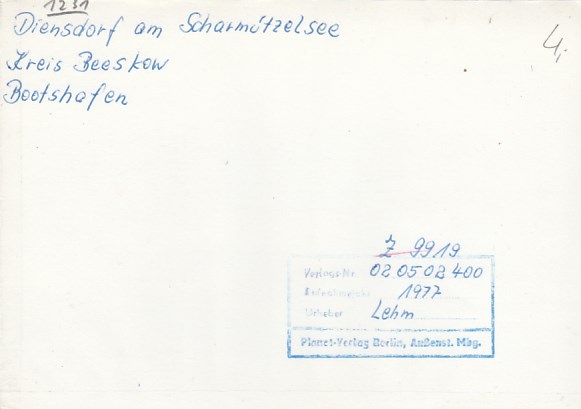 1231
Diensdorf am Scharmützelsee
Kreis Beeskow
Bootshafen
4,
Z 9919
Verlags-Nr. 02 05 02 400
Aufnahmejahr 1977
Urheber Lehm
Planet-Verlag Berlin, Außenst. Mbg.